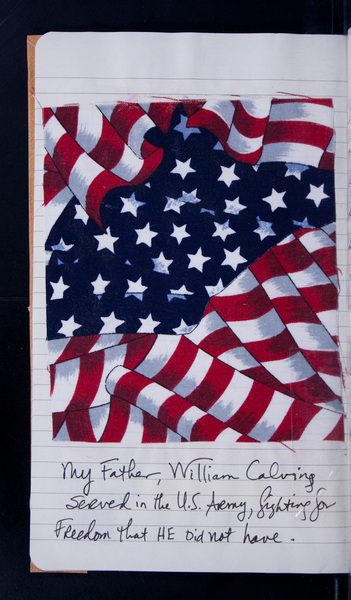 My Father, William Calving
Served in the U.S. Army, fighting for
Freedom that HE Did not have.